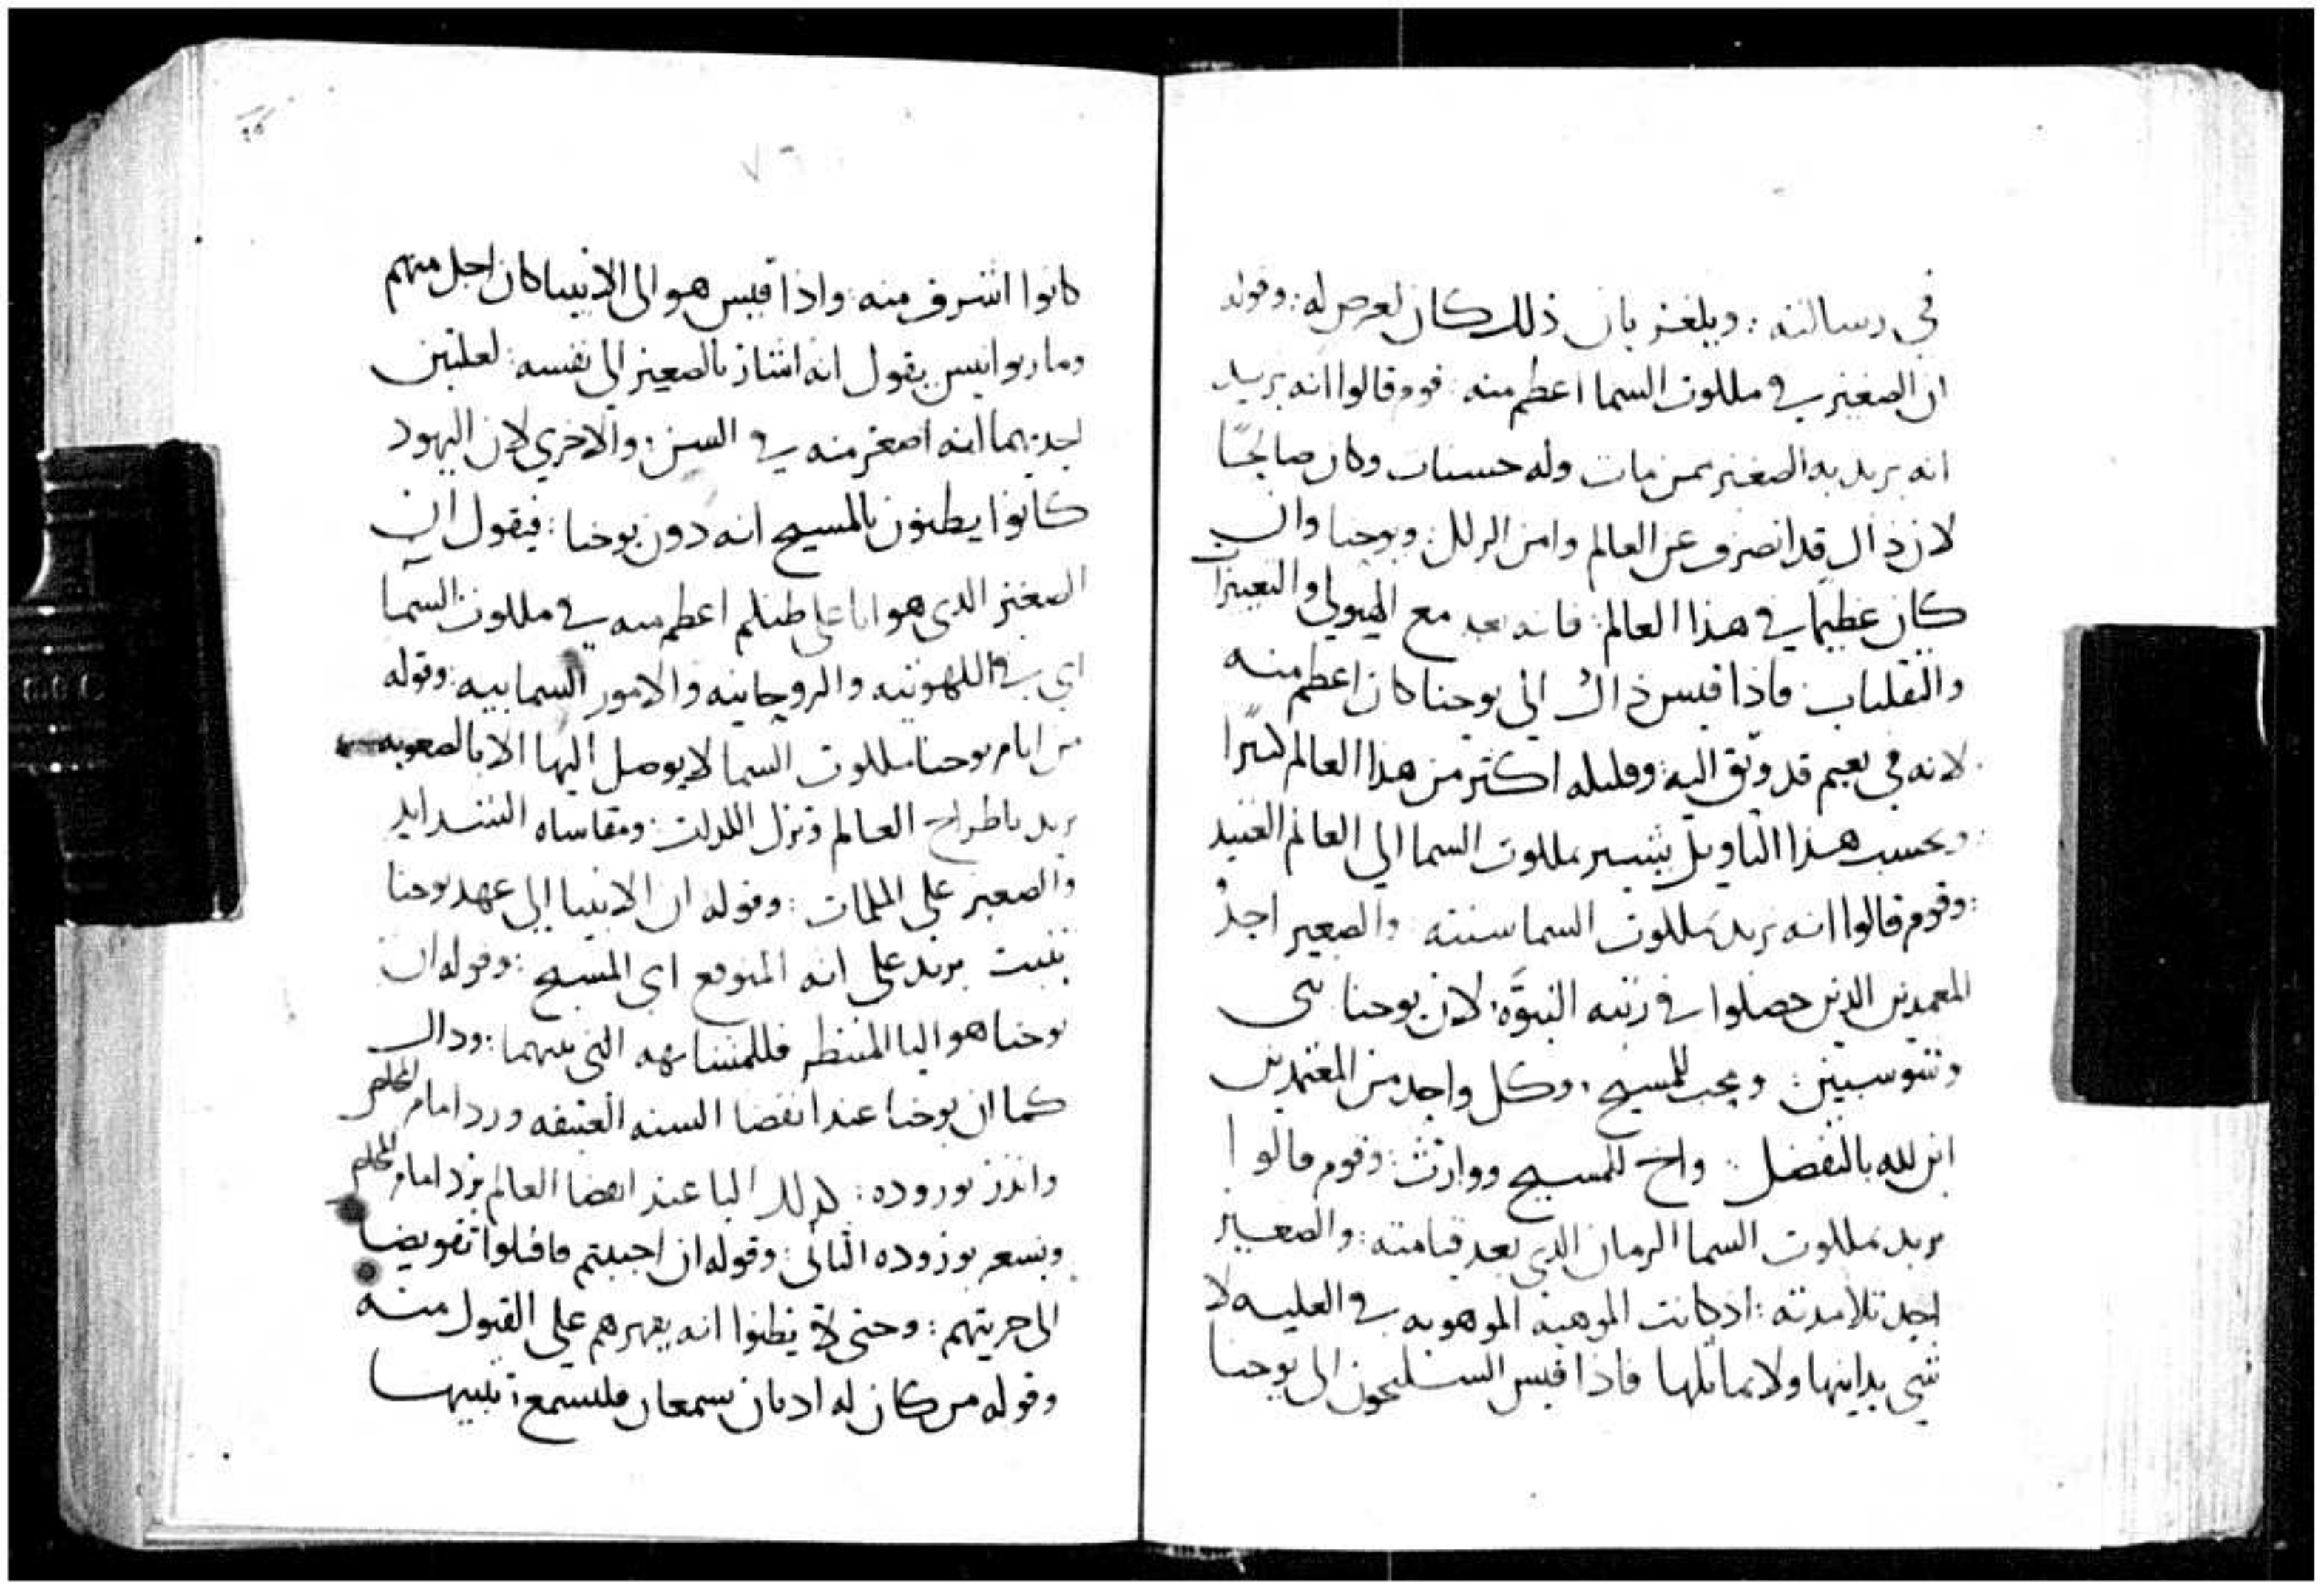 في رسالته : ويلغز بان ذلك كان لغرض له : وقوله
ان الصغير في ملكوت السما اعظم منه : قوم قالوا انه يريد
انه يريد به الصغير ممن مات وله حسنات وكان صالحًا
لان ذاك قد انصرف عن العالم وامن الزلل : ويوحنا وان
كان عظيمًا في هذا العالم : فانه بعد مع الهيولي والتغييرات
والتقلبات : فاذا قيس ذاك الى يوحنا كان اعظم منه
لانه في نعيم قد وثق اليه : وقليله اكثر من هذا العالم كثيرًا
: وبحسب هذا التاويل يشير بملكوت السما الي العالم العتيد
: وقوم قالوا انه يريد بملكوت السما سنته والصغير احد
المعمدين الذين حصلوا في رتبة النبوّة : لان يوحنا نبي
ومحب للمسيح : وكل واحد من المعتمدين
ابن لله بالتفضل : واخ للمسيح ووارث : وقوم قالوا
يريد بملكوت السما الزمان الذي بعد قيامته : والصغير
احد تلامذته : اذ كانت الموهبة الموهوبه في العليه لا
شي يدانيها ولا يماثلها فاذا قيس السليحون الى يوحنا
٧٦
كانوا اشرف منه : واذا قيس هو الى الانبيا كان اجل منهم
وماريوانيس يقول انه اشار بالصغير الي نفسه : لعلتين
احديهما انه اصغر منه في السن : والاخري لان اليهود
كانوا يظنون بالمسيح انه دون يوحنا : فيقول ان
الصغير الذي هو انا على ظنكم اعظم منه في ملكوت السما
اي في اللاهوتيه والروحانيه والامور السماييه : وقوله
من ايام يوحنا ملكوت السما لا يوصل اليها الا بالصعوبه
يريد باطراح العالم وترك اللذات : ومقاساه الشدايد
والصبر على الملمات : وقوله ان الانبيا الى عهد يوحنا
تنبت يريد على انه المتوقع اي المسيح : وقوله ان
يوحنا هو اليا المنتظر فللمشابهه التي بينهما : وذاك
كما ان يوحنا عند انقضا السنه العتيقه ورد امام المخلص
وانذر بوروده : كذلك اليا عند انقضا العالم يرد امام المخلص
ويشعر بوروده الثاني : وقوله ان احببتم فاقبلوا تفويضا
الى حريتهم : وحتى لا يظنوا انه يقهرهم على القبول منه
وقوله من كان له اذنان سمعان فليسمع : تنبيها